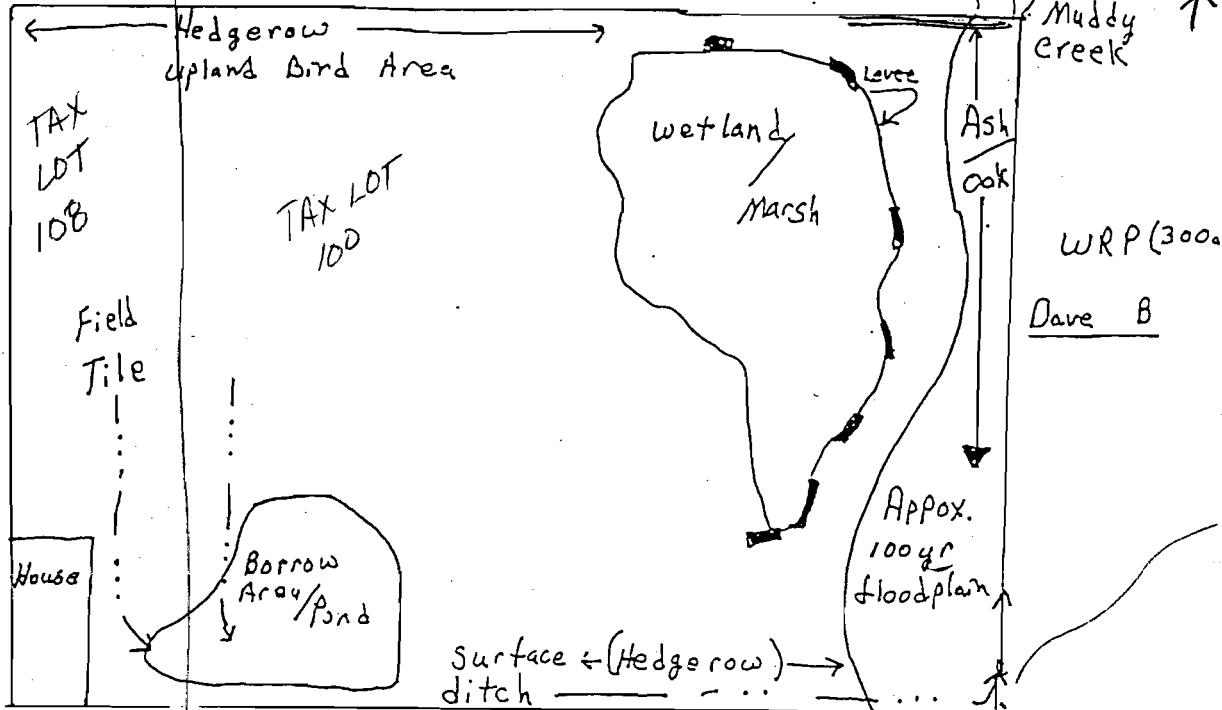 Hedgerow
upland Bird Area
Muddy
Creek
TAX
LOT
108
TAX LOT
100
wetland/
Marsh
Levee
Ash/
oak
WRP (300a
Dave B
Field
Tile
House
Borrow
Area/Pond
Appox.
100 yr
floodplain
surface (Hedgerow)
ditch